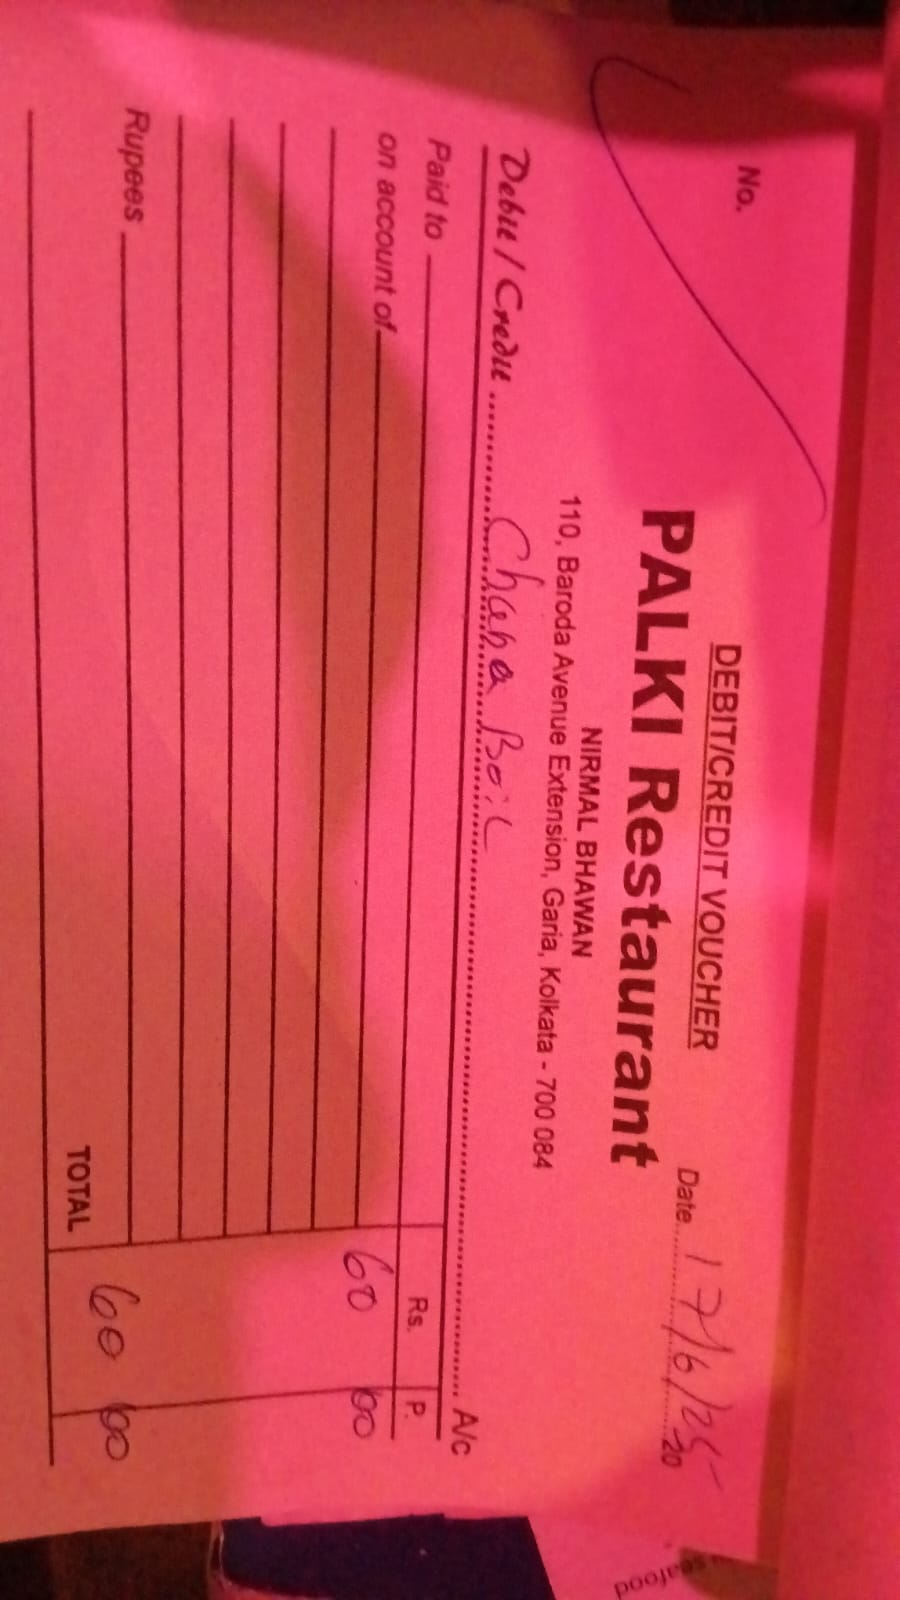 DEBIT/CREDIT VOUCHER
No.
Date 17/6/25 20
PALKI Restaurant
NIRMAL BHAWAN
110, Baroda Avenue Extension, Garia, Kolkata - 700 084
Debit / Credit Chana Boil A/c
Paid to Rs. P.
on account of 60 00
Rupees
TOTAL 60 00
seafood